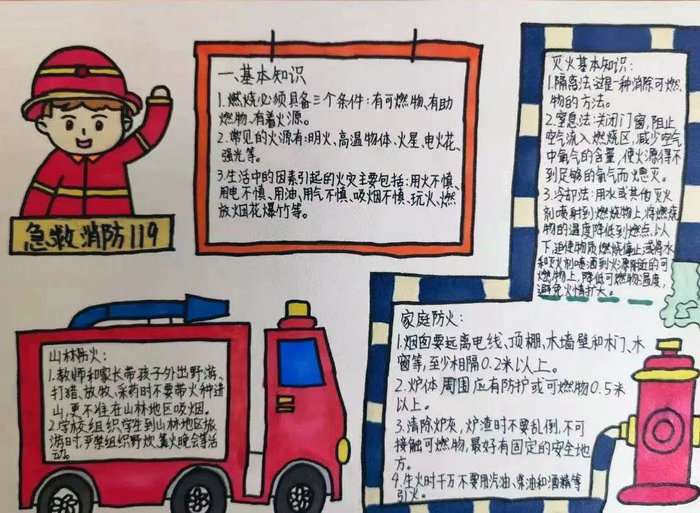 急救消防119
一、基本知识
1.燃烧必须具备三个条件:有可燃物、有助
燃物、有着火源。
2.常见的火源有:明火、高温物体、火星、电火花、
强光等。
3.生活中的因素引起的火灾主要包括:用火不慎、
用电不慎、用油、用气不慎、吸烟不慎、玩火、燃
放烟花爆竹等。
灭火基本知识:
1.隔离法:这是一种消除可燃
物的方法。
2.窒息法:关闭门窗,阻止
空气流入燃烧区,减少空气
中氧气的含量,使火源得不
到足够的氧气而熄灭。
3.冷却法:用水或其他灭火
剂喷射到燃烧物上,将燃烧
物的温度降低到燃点以
下,迫使物质燃烧停止;或将水
和灭火剂喷洒到火源附近的可
燃物上,降低可燃物温度,
避免火情扩大。
山林防火:
1.教师和家长带孩子外出野游、
打猎、放牧、采药时不要带火种进
山,更不准在山林地区吸烟。
2.学校组织学生到山林地区旅
游时,严禁组织野炊、篝火晚会等活
动。
家庭防火:
1.烟囱要远离电线、顶棚、木墙壁和木门、木
窗等,至少相隔0.2米以上。
2.炉体周围应有防护或可燃物0.5米
以上。
3.清除炉灰,炉渣时不要乱倒,不可
接触可燃物,最好有固定的安全地
方。
4.生火时千万不要用汽油、柴油和酒精等
引火。